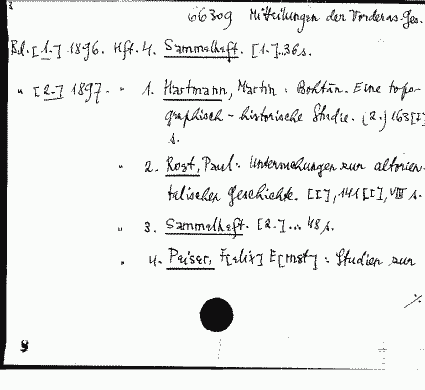 66309 Mitteilungen der Vorderas. Ges.
Bd. [1.] 1896. Hft. 4. Sammelheft. [1.] 36 s.
" [2.] 1897. " 1. Hartmann, Martin: Bohtān. Eine topo-
graphisch-historische Studie. (2.) 163 [1]
s.
" 2. Rost, Paul: Untersuchungen zur altorien-
talischen Geschichte. [I], 141 [I], VIII s.
" 3. Sammelheft. [2.] ... 48 s.
" 4. Peiser, F[elix] E[rnst]: Studien zur
./.